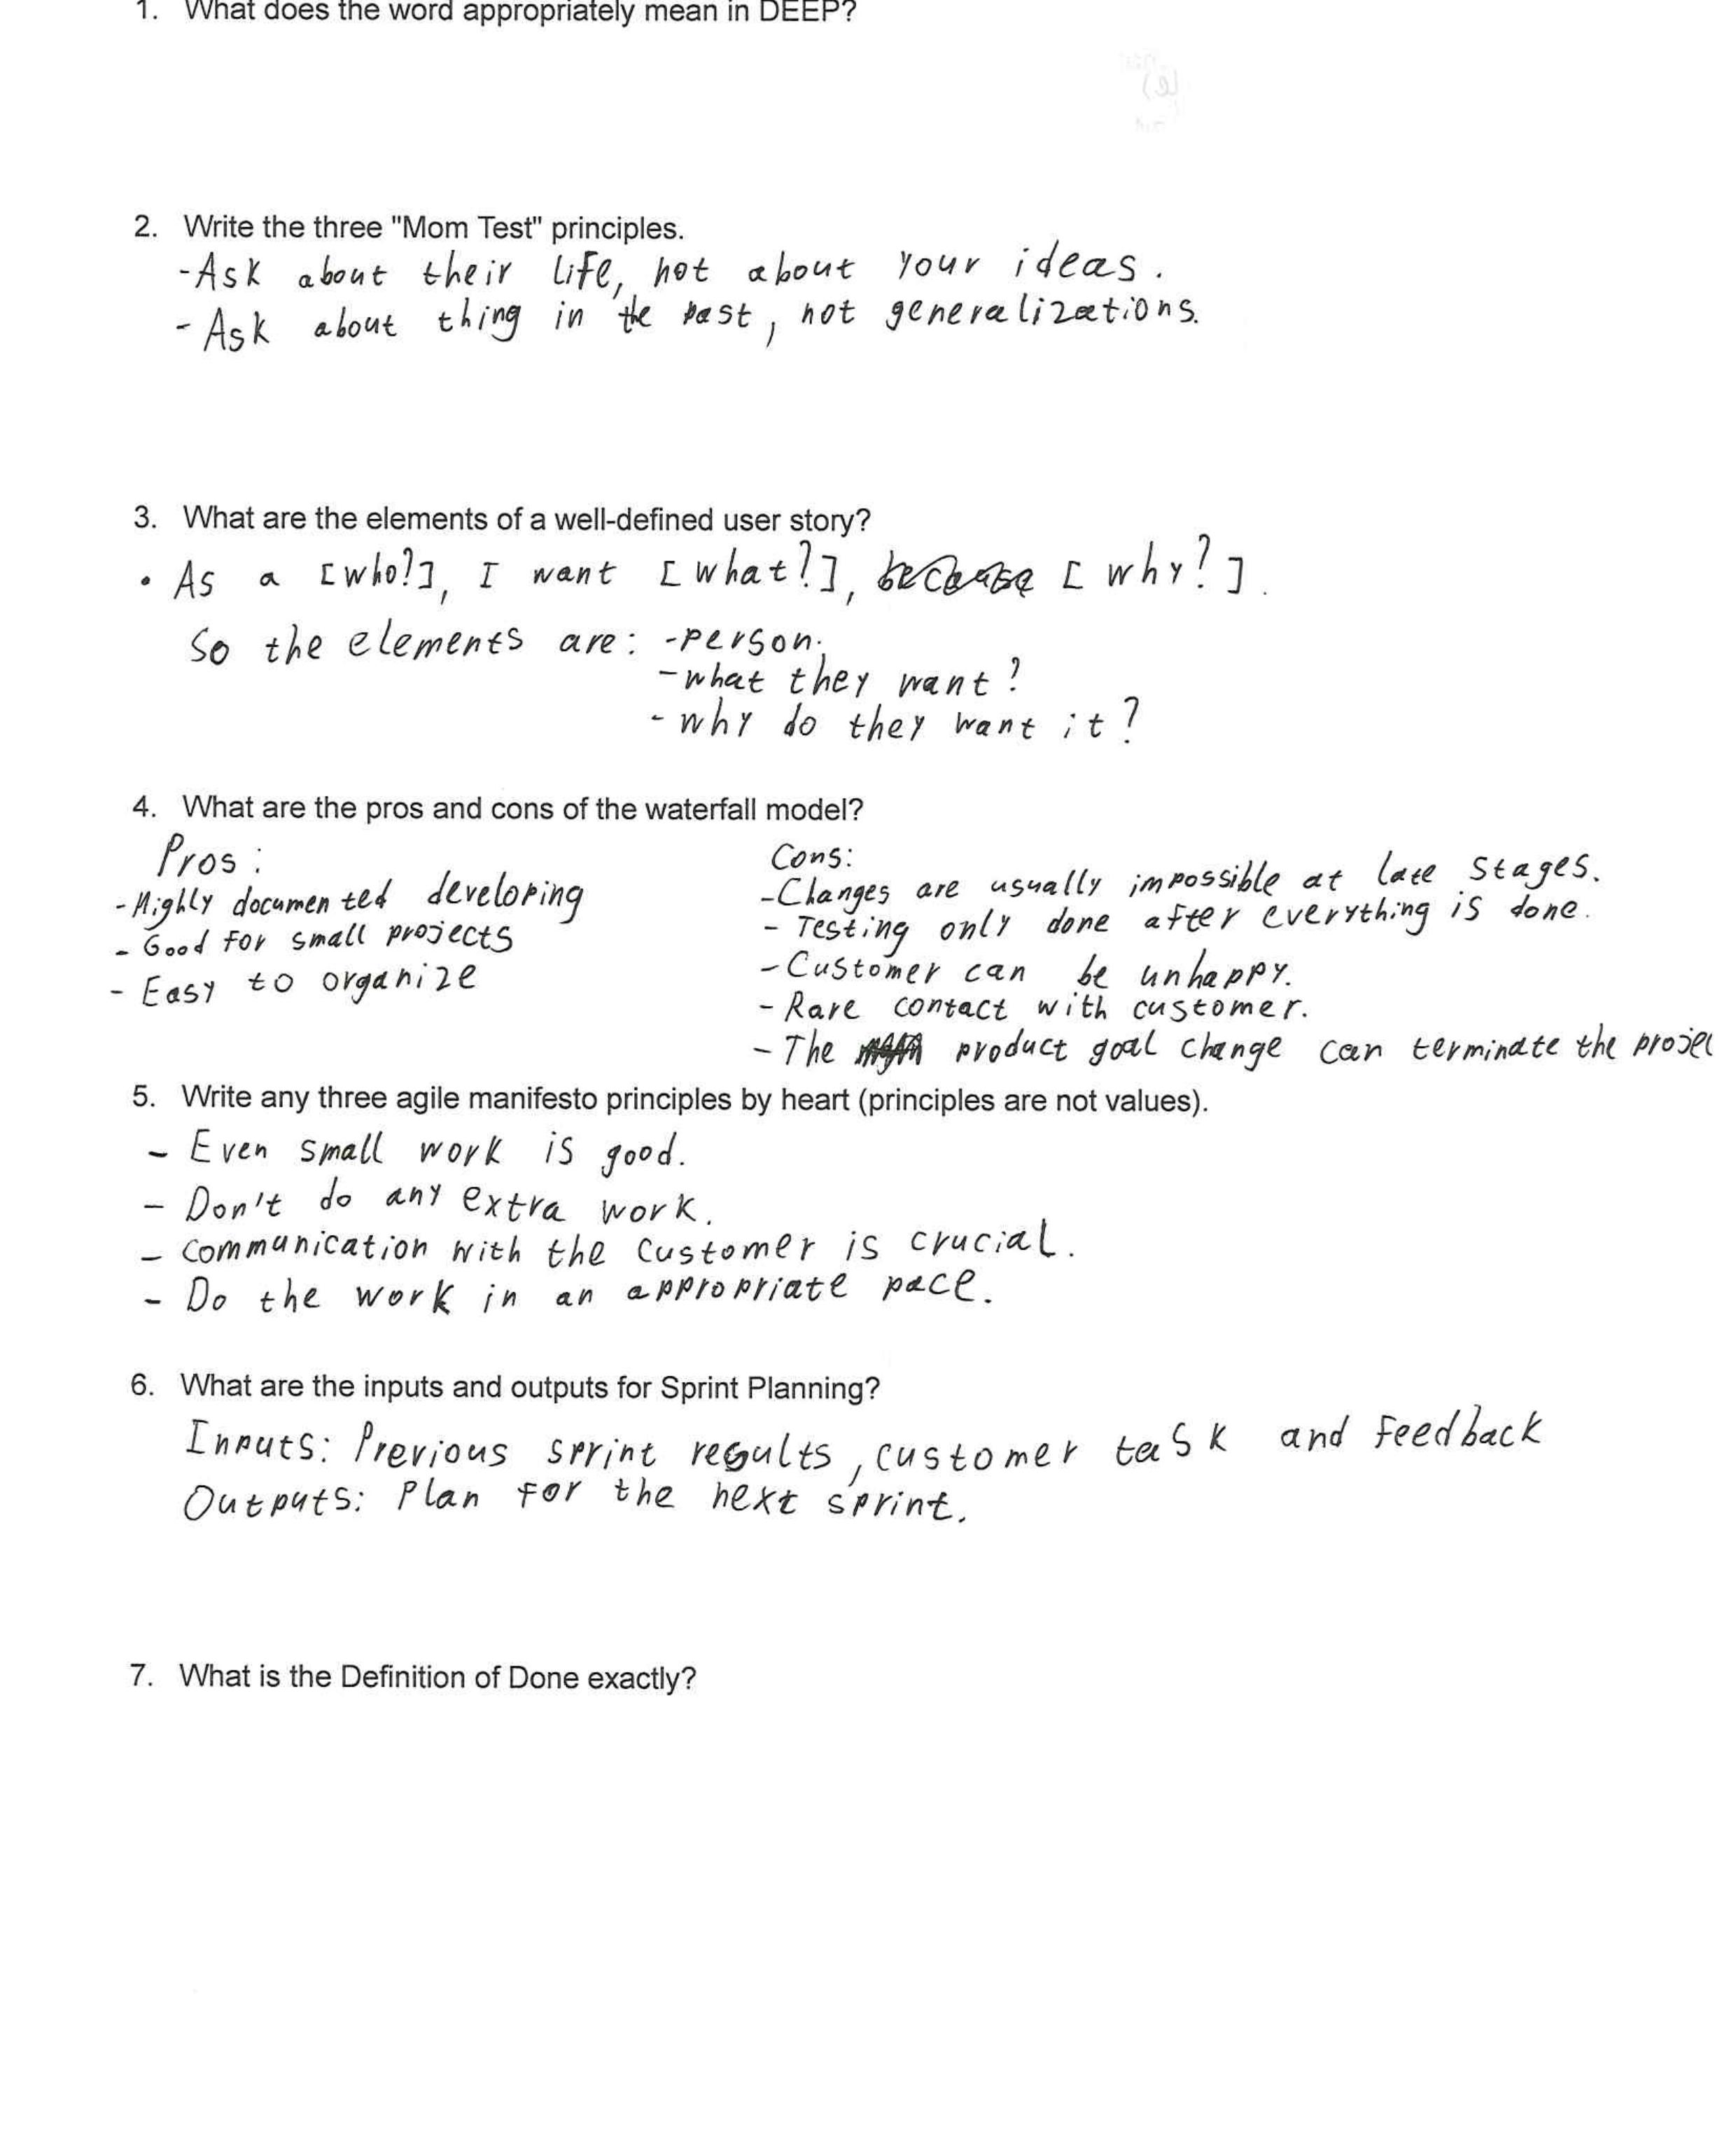 1. What does the word appropriately mean in DEEP?
2. Write the three "Mom Test" principles.
-Ask about their life, not about your ideas.
- Ask about thing in the past, not generalizations.
3. What are the elements of a well-defined user story?
• As a [who?], I want [what?], because [why?].
So the elements are: -person.
-what they want?
- why do they want it?
4. What are the pros and cons of the waterfall model?
Pros:
- Highly documented developing
- Good for small projects
- Easy to organize
Cons:
-Changes are usually impossible at late stages.
- Testing only done after everything is done.
- Customer can be unhappy.
- Rare contact with customer.
- The product goal change can terminate the projec
5. Write any three agile manifesto principles by heart (principles are not values).
- Even small work is good.
- Don't do any extra work.
- Communication with the customer is crucial.
- Do the work in an appropriate pace.
6. What are the inputs and outputs for Sprint Planning?
Inputs: Previous sprint results, customer task and Feedback
Outputs: Plan for the next sprint.
7. What is the Definition of Done exactly?